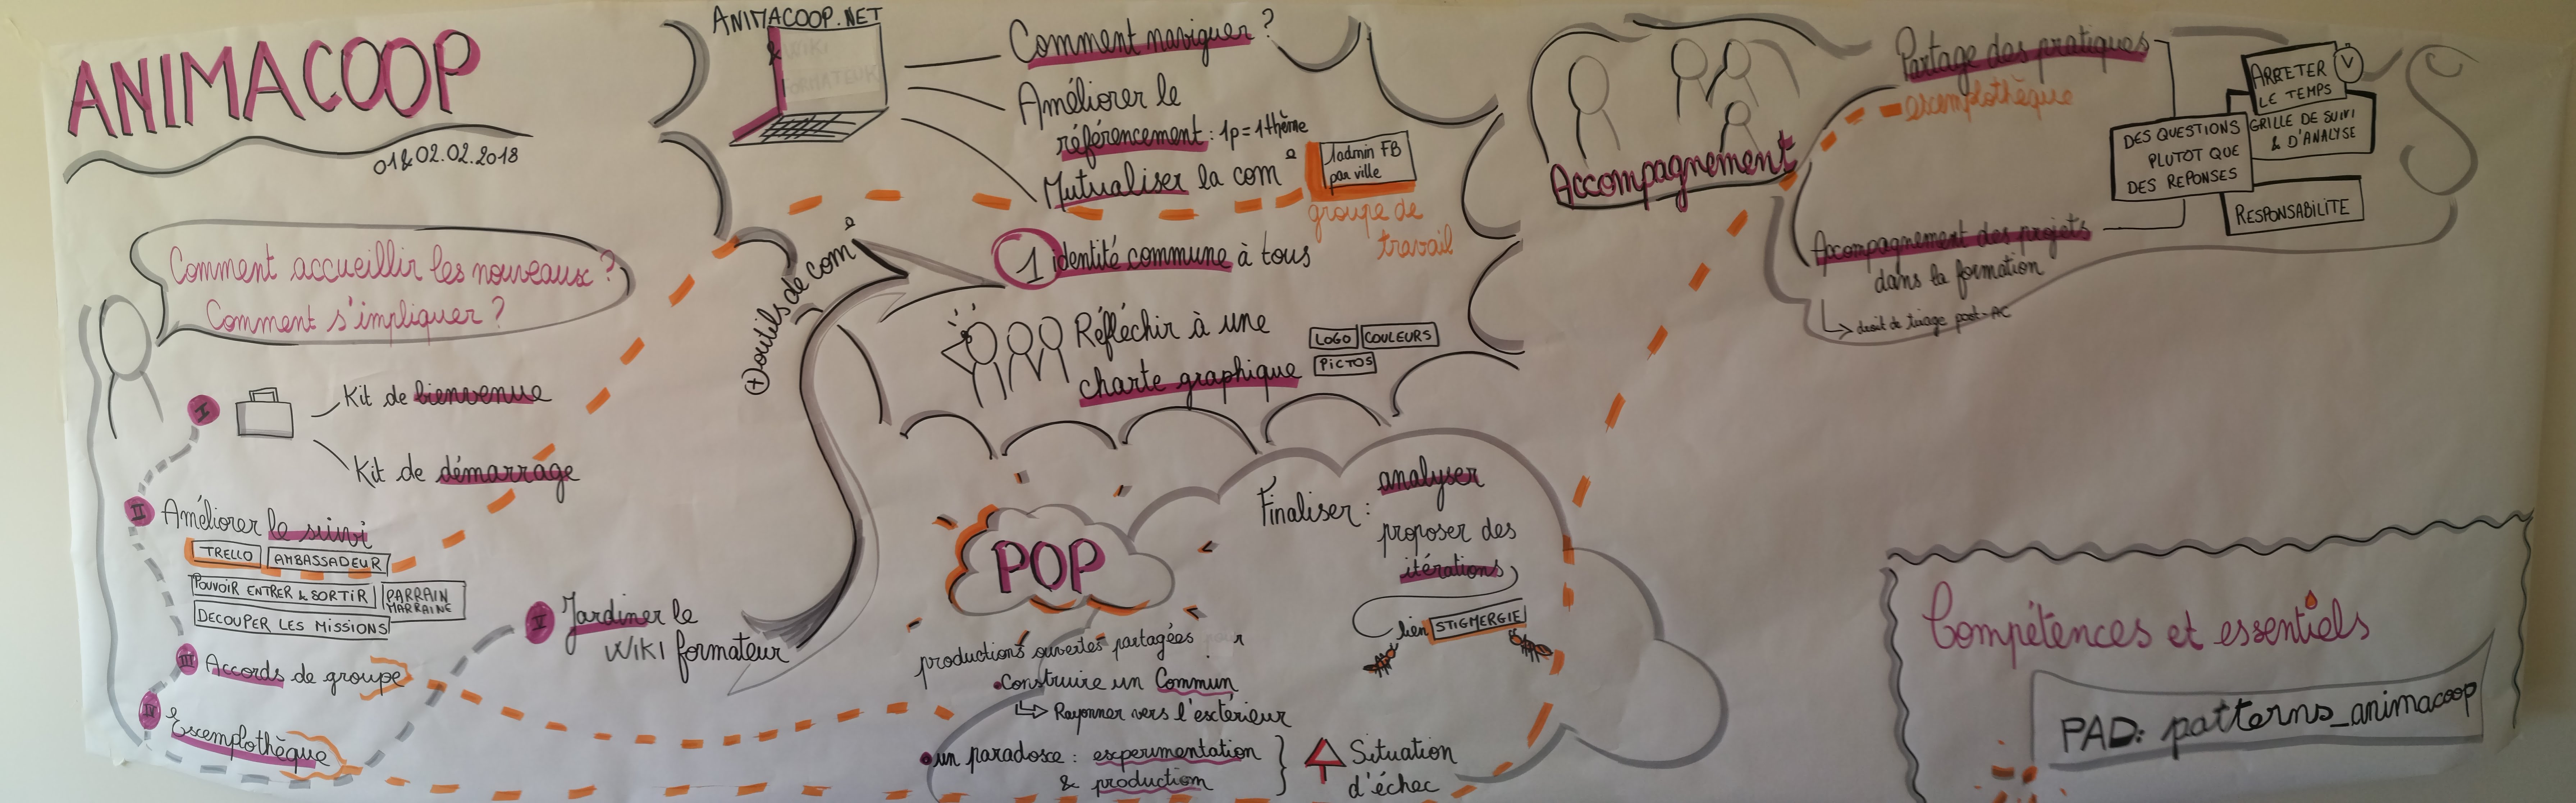 ANIMACOOP
01&02.02.2018
Comment accueillir les nouveaux ?
Comment s'impliquer ?
I
Kit de bienvenue
Kit de démarrage
II
Améliorer le suivi
TRELLO
AMBASSADEUR
POUVOIR ENTRER & SORTIR
PARRAIN
MARRAINE
DECOUPER LES MISSIONS
III
Accords de groupe
IV
Exemplothèque
V
Jardiner le
WIKI formateur
ANIMACOOP.NET
&
WIKI
FORMATEUR
Comment naviguer ?
Améliorer le
référencement : 1p=1thème
Mutualiser la com°
1admin FB
par ville
groupe de
travail
+ outils de com°
1 identité commune à tous
Réfléchir à une
charte graphique
LOGO
COULEURS
PICTOS
POP
productions ouvertes partagées
Construire un Commun
Rayonner vers l'extérieur
un paradoxe : experimentation
& production
Situation
d'échec
Finaliser :
analyser
proposer des
itérations
lien STIGMERGIE
Accompagnement
Partage des pratiques
exemplothèque
Accompagnement des projets
dans la formation
droit de tirage post-AC
DES QUESTIONS
PLUTOT QUE
DES REPONSES
ARRETER
LE TEMPS
GRILLE DE SUIVI
& D'ANALYSE
RESPONSABILITE
Compétences et essentiels
PAD: patterns_animacoop